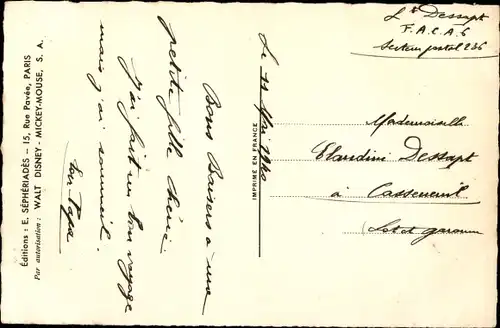 Lt Dessapt
F.A.C.A.6
Secteur postal 236
Le 11 Mai 1940
Bons Baisers a une
petite fille chérie
J'ai fait un bon voyage
mais j'ai sommeil.
ton Papa
Mademoiselle
Claudine Dessapt
à Casseneuil
Lot et garonne
IMPRIMÉ EN FRANCE
Éditions : E. SÉPHÉRIADÈS - 15, Rue Pavée, PARIS
Par autorisation : WALT DISNEY - MICKEY-MOUSE, S. A.